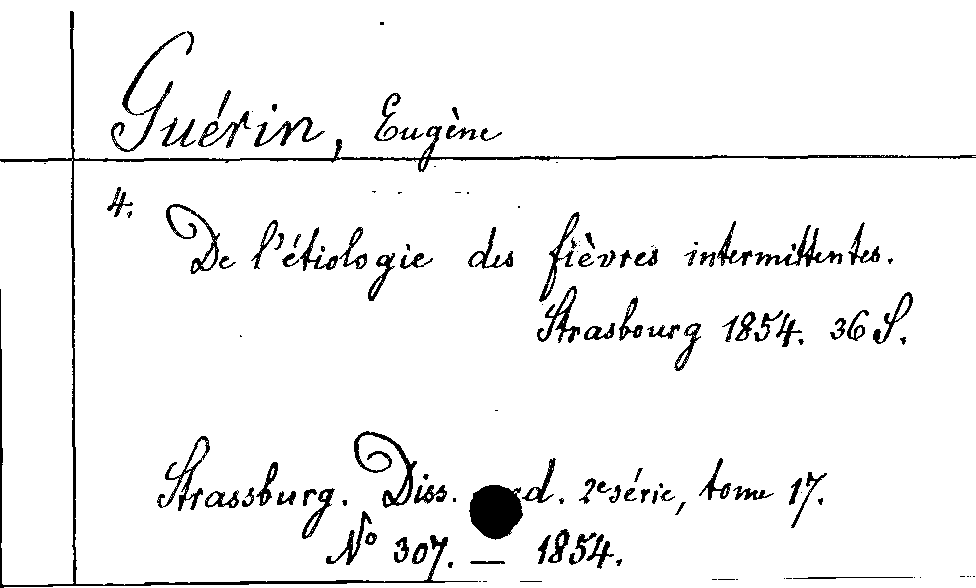 Guérin, Eugène
4.
De l'étiologie des fièvres intermittentes.
Strasbourg 1854. 36 S.
Strassburg. Diss. 2e série, tome 17.
No 307. — 1854.